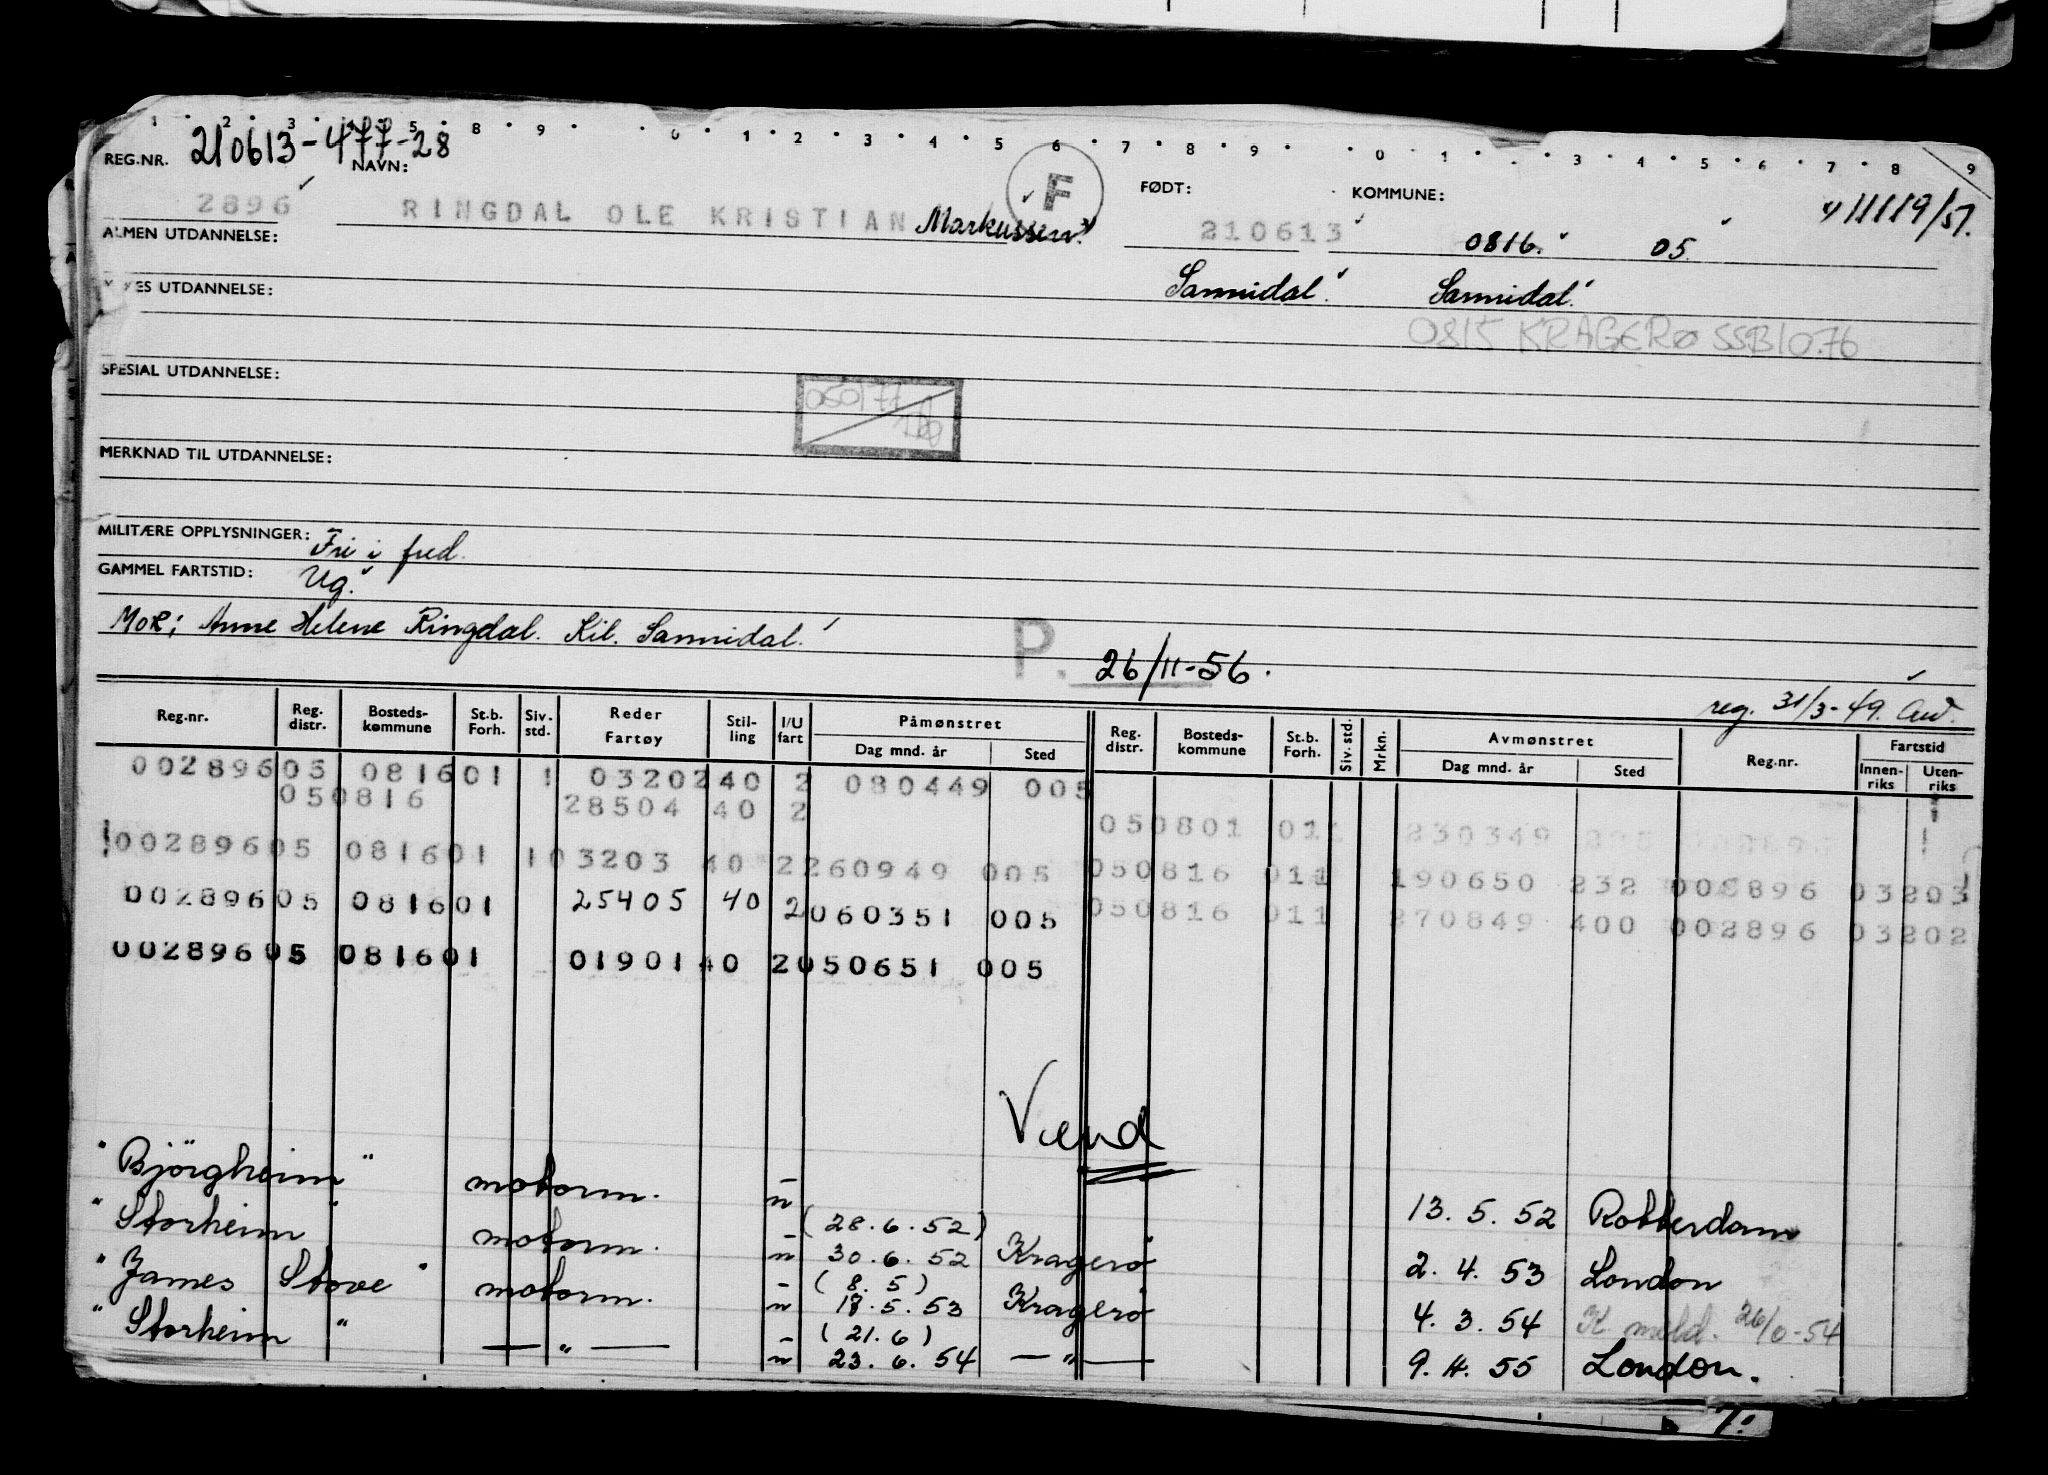 1 2 3 4 5 8 9 0 1 2 3 4 5 6 7 8 9 0 1 3 4 5 6 7 8 9
REG.NR. 210613-477-28 NAVN: FØDT: KOMMUNE: 11119/57.
2896 RINGDAL OLE KRISTIAN Markussen F 210613 0816. 05.
ALMEN UTDANNELSE:
Sannidal. Sannidal.
UTDANNELSE:
0815 KRAGERØ SSB 10.76
SPESIAL UTDANNELSE:
050177
MERKNAD TIL UTDANNELSE:
MILITÆRE OPPLYSNINGER: Fri i fred.
GAMMEL FARTSTID: Ug.
Mor: Anne Helene Ringdal. Kil. Sannidal.
P. 26/11-56.
reg. 31/3-49.
Reg.nr. Reg. distr. Bosteds-kommune St.b. Forh. Siv. std. Reder Fartøy Stil-ling I/U fart Påmønstret Dag mnd. år Sted Reg. distr. Bosteds-kommune St.b. Forh. Siv. std. Mrkn. Avmønstret Dag mnd. år Sted Reg.nr. Fartstid Innen-riks Uten-riks
002896 05 0816 01 1 03202 40 2 080449 005
050816 28504 40 2 050801 011 230349
002896 05 0816 01 1 03203 40 2 260949 005 050816 011 190650 232 002896 03203
002896 05 0816 01 25405 40 2 060351 005 050816 011 270849 400 002896 03202
002896 05 0816 01 01901 40 2 050651 005
Vend
"Bjørgheim" motorm. u 13. 5. 52 Rotterdam
"Storheim" motorm. u (28.6.52) 30.6.52 Kragerø 2. 4. 53 London
"James Stove" motorm. u (8.5) 18.5.53 Kragerø 4. 3. 54 K. meld.
"Storheim" — " — u (21.6) 23.6.54 — " — 9. 4. 55 London.
7.